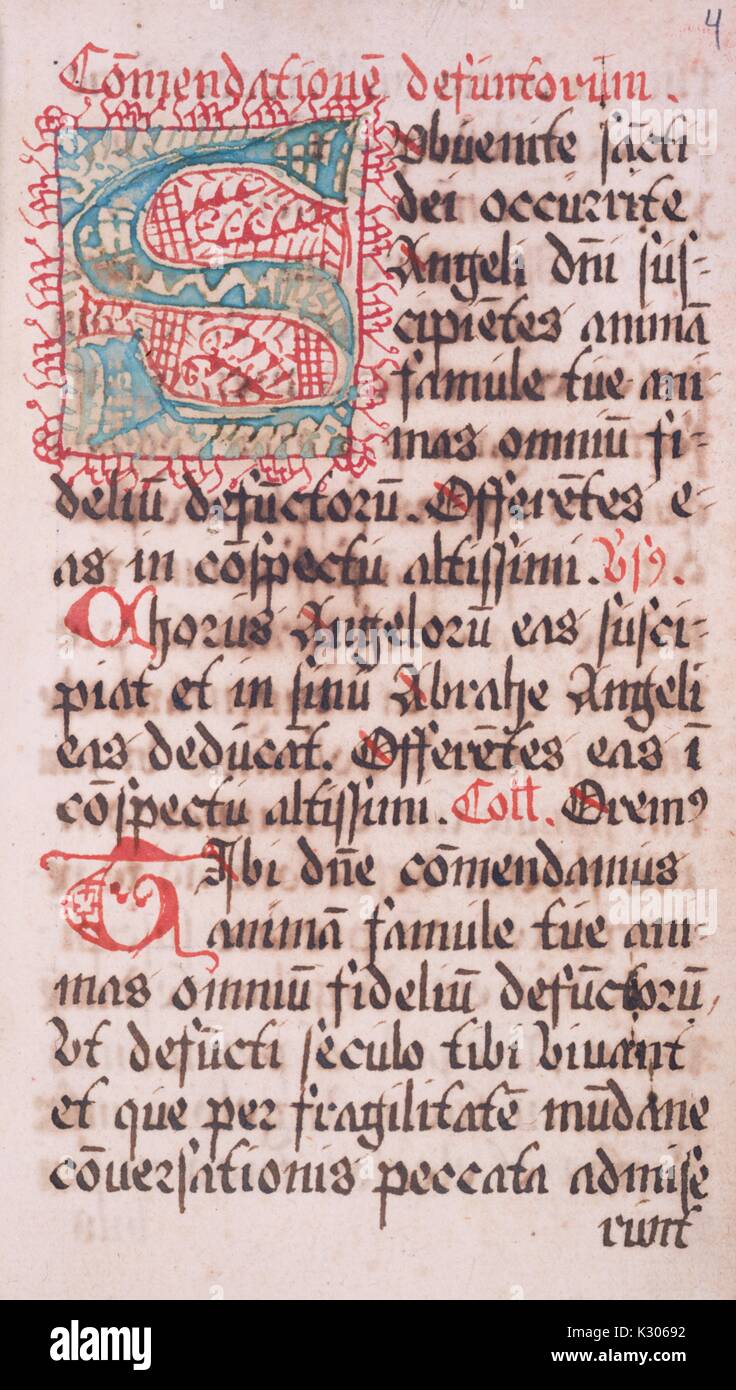 4
Cōmendationē defuntorum.
SVbuenite sācti
dei occurrite
Angeli dn̄i sus-
cipiētes animā
famule tue ani
mas omniū fi-
deliū defūctorū. Offerētes e-
as in cōspectu altissimi. Vsꝯ.
Chorus Angelorū eas susci-
piat et in sinu Abrahe Angeli
eas deducāt. Offerētes eas ī
cōspectu altissimi. Coll. Oremꝯ
TIbi dn̄e cōmendamus
animā famule tue ani-
mas omniū fideliū defūctorū,
Vt defūcti seculo tibi viuant
et que per fragilitatē mūdane
cōuersationis peccata admise
runt
alamy
alamy
alamy
Image ID: K30692
www.alamy.com